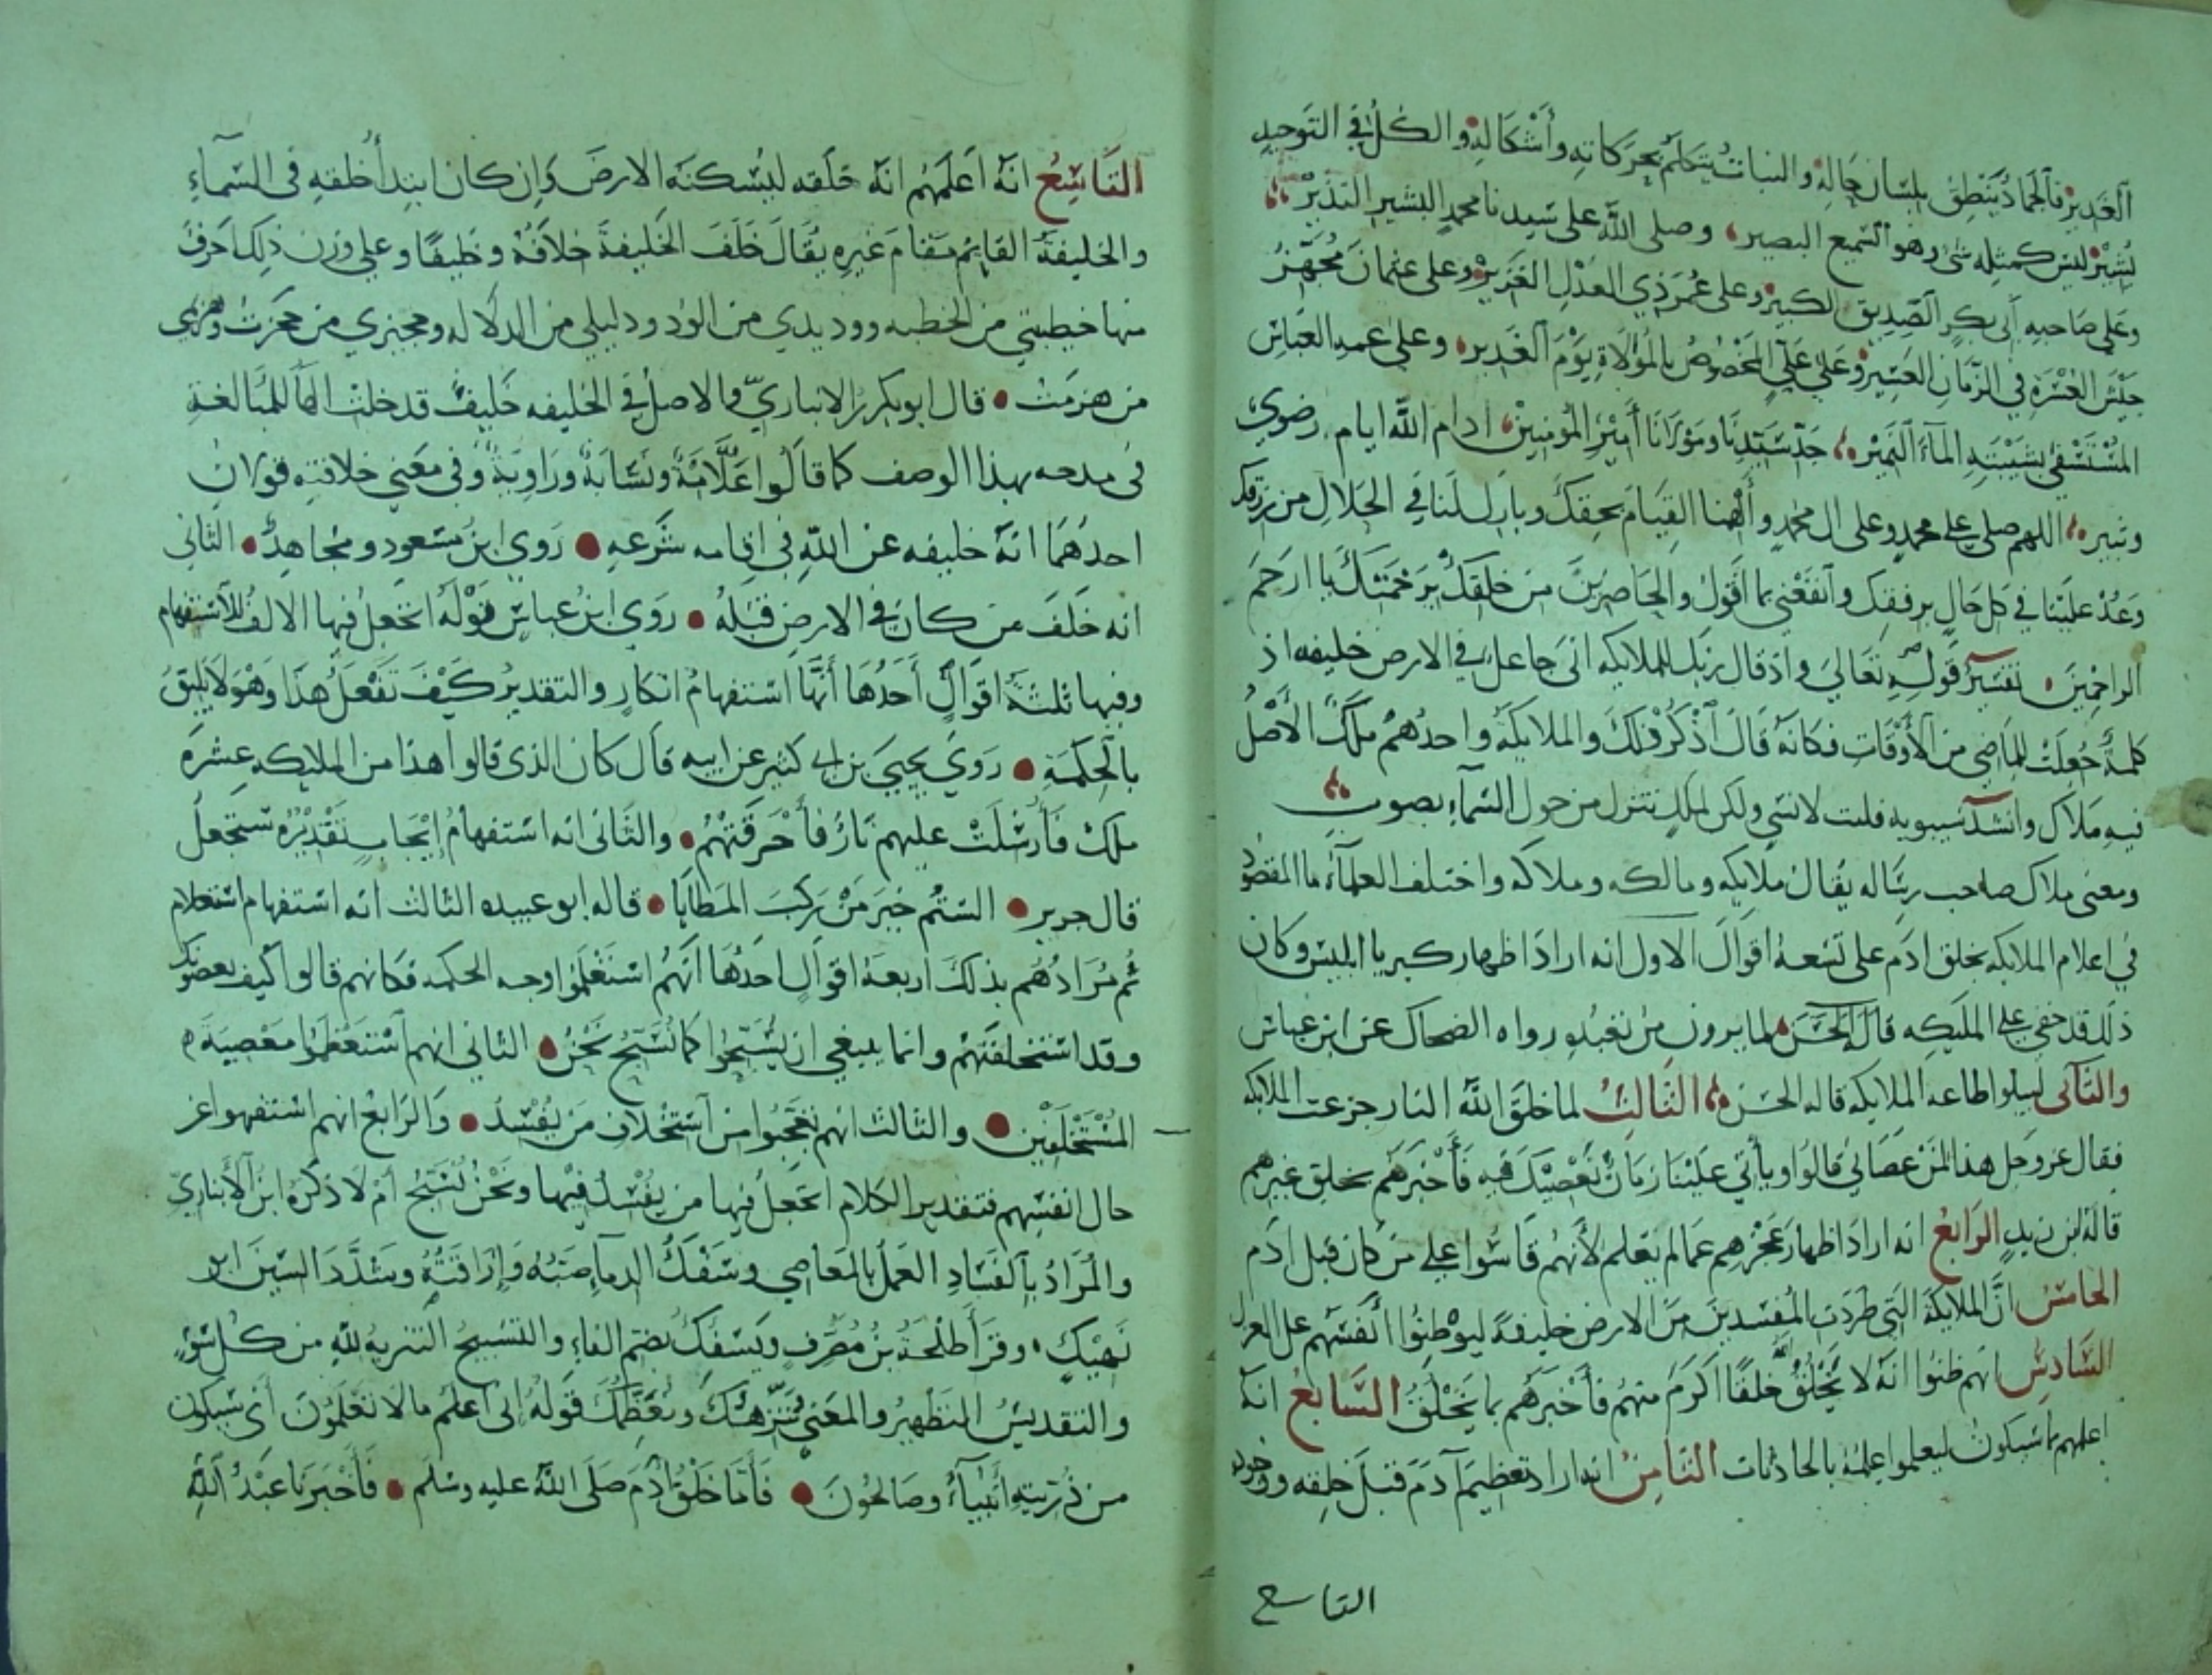 الغدير فالجماد ينطق بلسان حاله والنبات يتكلم بحركاته وأشكاله والكل في التوحيد
يشير ليس كمثله شئ وهو السميع البصير وصلى الله على سيدنا محمد البشير النذير
وعلى صاحبه أبي بكر الصديق الكبير وعلى عمر ذي العدل الغزير وعلى عثمان مجهز
جيش العسرة في الزمان العسير وعلى علي المخصوص بالموالاة يوم الغدير وعلى عمه العباس
المستسقى بشيبته الماء النمير جد سيدنا ومولانا أمير المؤمنين ادام الله ايام رضوي
وثبير اللهم صلي على محمد وعلى ال محمد وألهمنا القيام بحقك وبارك لنا في الحلال من رزقك
وعد علينا في كل حال برفقك وانفعني بما اقول والحاضرين من خلقك برحمتك يا ارحم
الراحمين تفسير قوله تعالى واذ قال ربك للملايكه اني جاعل في الارض خليفه اذ
كلمة جعلت للماضي من الأوقات فكانه قال اذكر ذلك والملايكة واحدهم ملك الأصل
فيه ملاك وانشد سيبويه فلست لانسي ولكن لملك تنزل من حول السماء بصوب
ومعنى ملاك صاحب رساله يقال ملايكه ومالكه وملاكه واختلف العلماء ما المقصود
في اعلام الملايكه بخلق ادم على تسعة اقوال الاول انه اراد اظهار كبر يا ابليس وكان
ذلك قد خفي على المليكه قال الحسن لما يرون من تعبده رواه الضحاك عن ابن عباس
والثاني ليبلوا طاعه الملايكه قاله الحسن الثالث لما خلق الله النار جزعت الملايكه
فقال عز وجل هذا لمن عصاني قالوا ويأتي علينا زمان نعصيك فيه فأخبرهم بخلق غيرهم
قاله ابن زيد الرابع انه اراد اظهار عجزهم عما لم يعلم لأنهم قاسوا على من كان قبل ادم
الخامس ان الملايكة التي طردت المفسدين من الارض خليفة ليوطنوا انفسهم على العزل
السادس انهم ظنوا انه لا يخلق الله خلقا اكرم منهم فأخبرهم بما يخلق السابع انه
اعلمهم بما سيكون ليعلموا علمه بالحادثات الثامن انه اراد تعظيم آدم قبل خلقه ووجوده
التاسع
التاسع انه اعلمهم انه خلقه ليسكنه الارض وان كان ابتدأ خلقه في السماء
والخليفة القايم مقام غيره يقال خلف الخليفة خلافة وخليفا وعلى وزن ذلك احرف
منها خطيبتي من الخطبه ووديدي من الود ودليلي من الدلاله وحجيزي من حجزت وهزيمي
من هزمت قال ابو بكر بن الانباري والاصل في الخليفه خليف فدخلت الها للمبالغة
في مدحه بهذا الوصف كما قالوا علامة ونسابة وراوية وفي معنى خلافته قولان
احدهما انه خليفه عن الله في اقامه شرعه روي ابن مسعود ومجاهد الثاني
انه خلف من كان في الارض قبله روي ابن عباس قوله اتجعل فيها الالف للاستفهام
وفيها ثلثة اقوال أحدها أنها استفهام انكار والتقدير كيف تفعل هذا وهو لا يليق
بالحكمة روي يحيي بن ابي كثير عن ابيه قال كان الذي قالوا هذا من المليكه عشرة
ملك فأرسلت عليهم نار فأحرقتهم والثاني انه استفهام إيجاب تقديره ستجعل
قال جرير الستم خير من ركب المطايا قاله ابو عبيده الثالث انه استفهام استعلام
ثم مرادهم بذلك اربعة اقوال احدها انهم استعلموا وجه الحكمه فكانهم قالوا كيف يعصونك
وقد استخلفتهم وانما ينبغي ان يسبحوا كما نسبح نحن الثاني انهم استعظموا معصية
المستخلفين والثالث انهم تعجبوا من استخلاف من يفسد والرابع انهم استفهموا عن
حال انفسهم فتقدير الكلام اتجعل فيها من يفسد فيها ونحن نسبح ام لا ذكره ابن الأنباري
والمراد بالفساد العمل بالمعاصي وسفك الدماء صبه وإراقته وشدد السين ابن
نهيك وقرأ طلحة بن مصرف ويسفك بضم الفاء والتسبيح التنزيه لله من كل سوء
والتقديس التطهير والمعنى ننزهك ونعظمك قوله اني اعلم ما لا تعلمون أي سيكون
من ذريته أنبياء وصالحون فأما خلق ادم صلى الله عليه وسلم فأخبرنا عبد الله